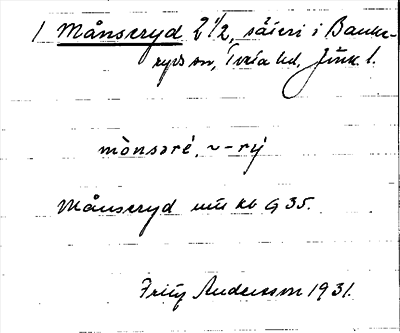 1 Månseryd 2 1/2, säteri i Banke-
ryds sn, Tveta hd, Jönk. l.
mȯnsəré, ~-rý
Månseryd
Fritz Andersson 1931.